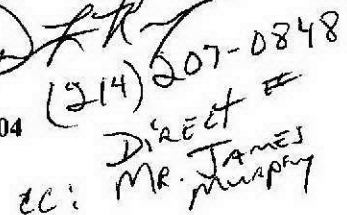 (214) 207-0848
04
DIRECT #
cc: MR. JAMES
MURPHY